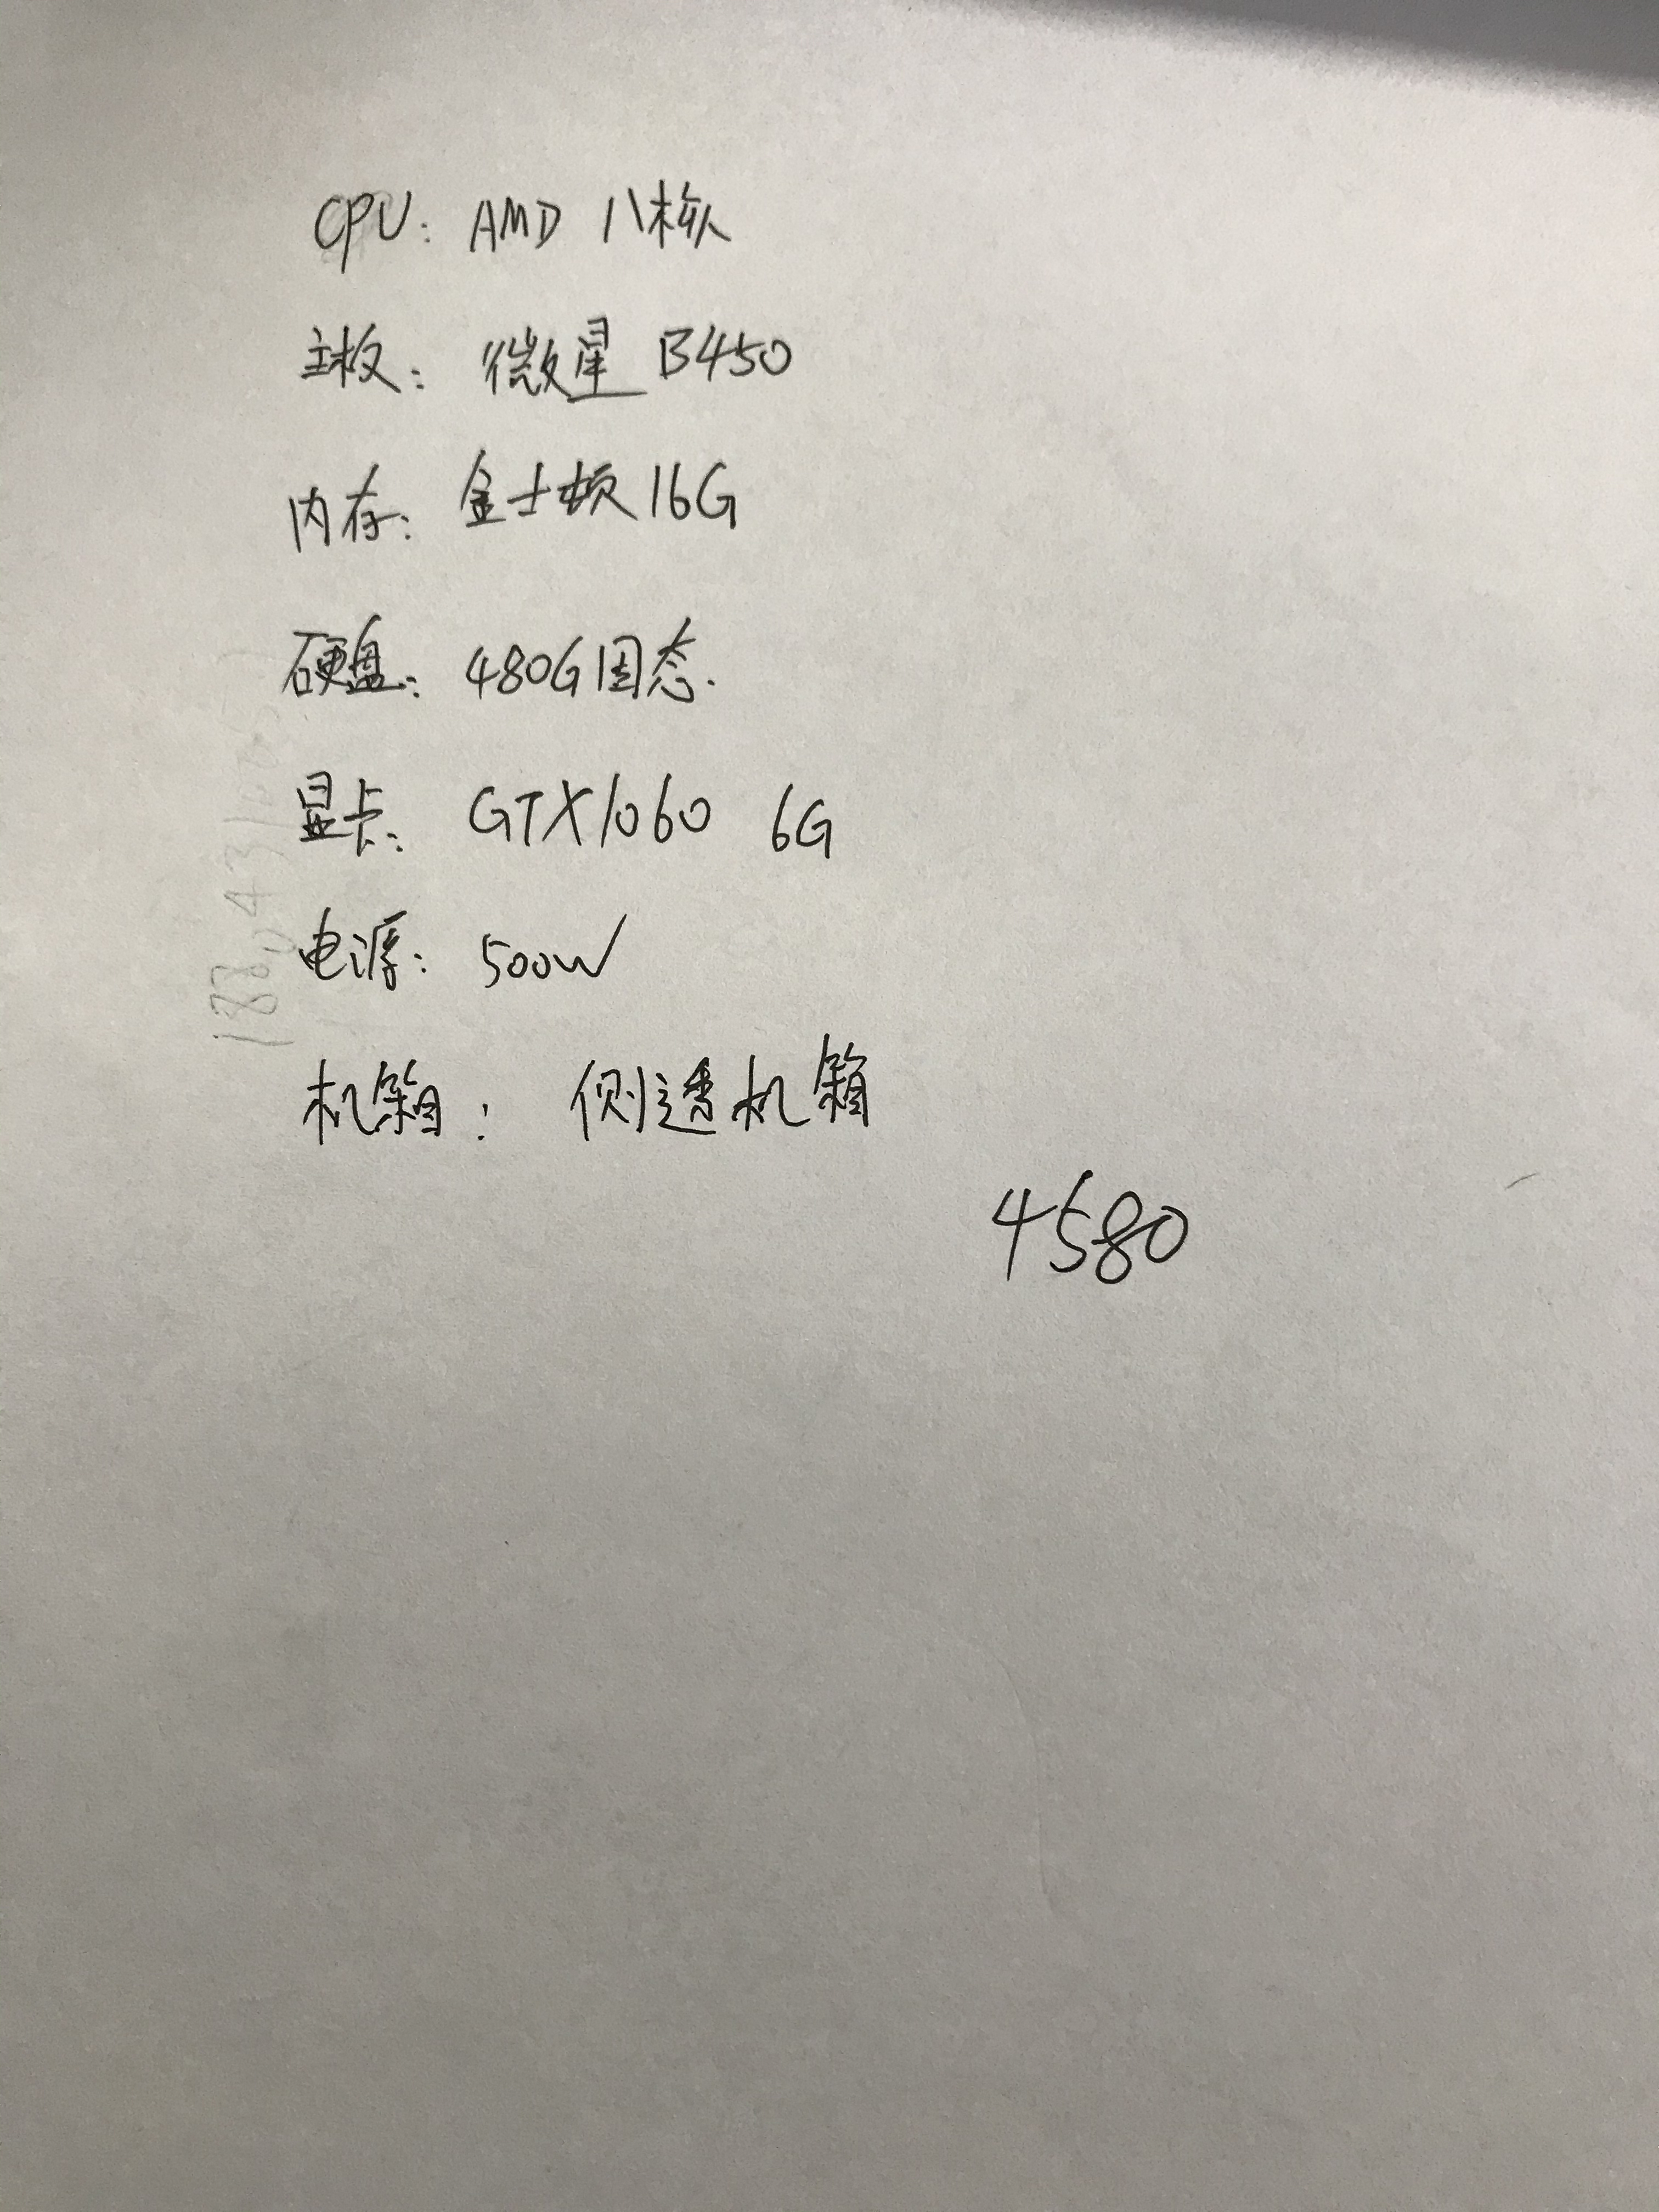 CPU: AMD 八核
主板: 微星 B450
内存: 金士顿 16G
硬盘: 480G固态.
显卡: GTX1060 6G
电源: 500W
机箱: 侧透机箱
4580